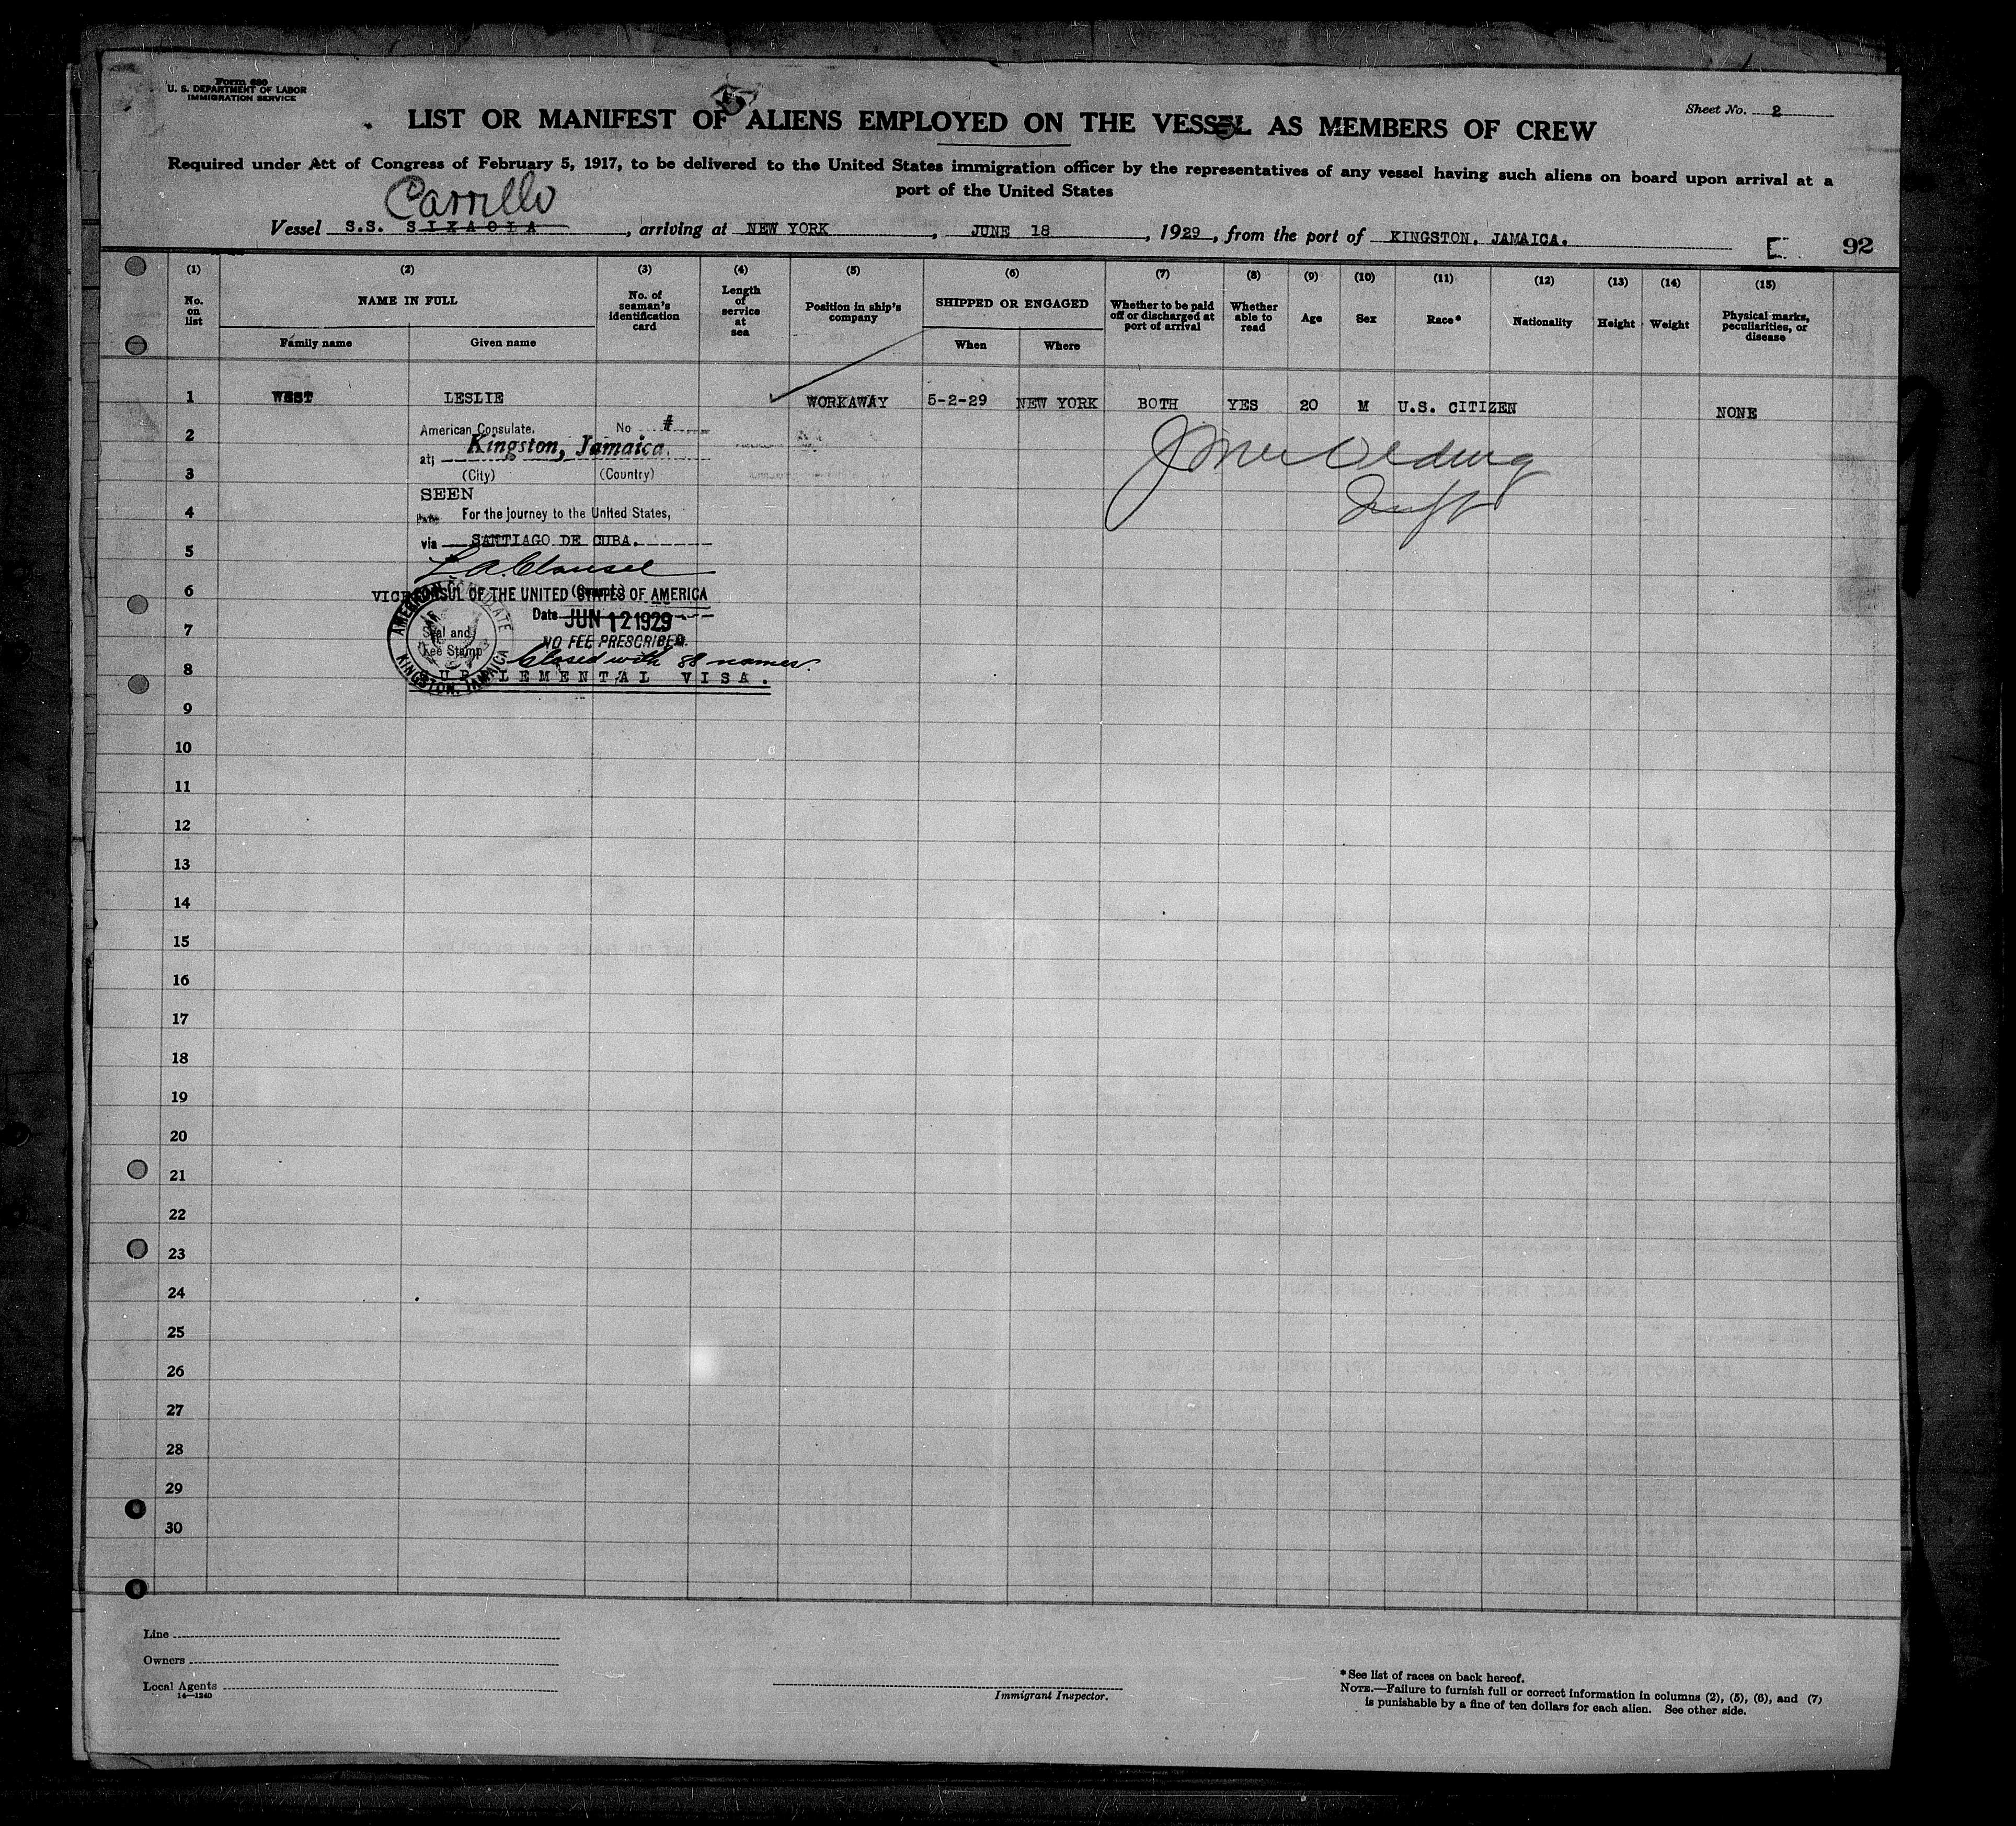 Form 680
U. S. DEPARTMENT OF LABOR
IMMIGRATION SERVICE
Sheet No. 2
LIST OR MANIFEST OF ALIENS EMPLOYED ON THE VESSEL AS MEMBERS OF CREW
Required under Act of Congress of February 5, 1917, to be delivered to the United States immigration officer by the representatives of any vessel having such aliens on board upon arrival at a
port of the United States
Carrillo
Vessel S.S. SIXAOLA, arriving at NEW YORK, JUNE 18, 1929, from the port of KINGSTON. JAMAICA.
92
(1) (2) (3) (4) (5) (6) (7) (8) (9) (10) (11) (12) (13) (14) (15)
No. on list
NAME IN FULL
Family name
Given name
No. of seaman's identification card
Length of service at sea
Position in ship's company
SHIPPED OR ENGAGED
When
Where
Whether to be paid off or discharged at port of arrival
Whether able to read
Age
Sex
Race*
Nationality
Height
Weight
Physical marks, peculiarities, or disease
1 WEST LESLIE WORKAWAY 5-2-29 NEW YORK BOTH YES 20 M U.S. CITIZEN NONE
2
3
4
5
6
7
8
9
10
11
12
13
14
15
16
17
18
19
20
21
22
23
24
25
26
27
28
29
30
American Consulate, No
at; Kingston, Jamaica.
(City) (Country)
SEEN
For the journey to the United States,
via SANTIAGO DE CUBA.
VICE CONSUL OF THE UNITED STATES OF AMERICA
Date JUN 12 1929
NO FEE PRESCRIBED.
Closed with 88 names.
SUPPLEMENTAL VISA.
AMERICAN CONSULATE
KINGSTON, JAMAICA
Seal and
Fee Stamp
Line
Owners
Local Agents
14—1240
Immigrant Inspector.
* See list of races on back hereof.
NOTE.—Failure to furnish full or correct information in columns (2), (5), (6), and (7)
is punishable by a fine of ten dollars for each alien. See other side.